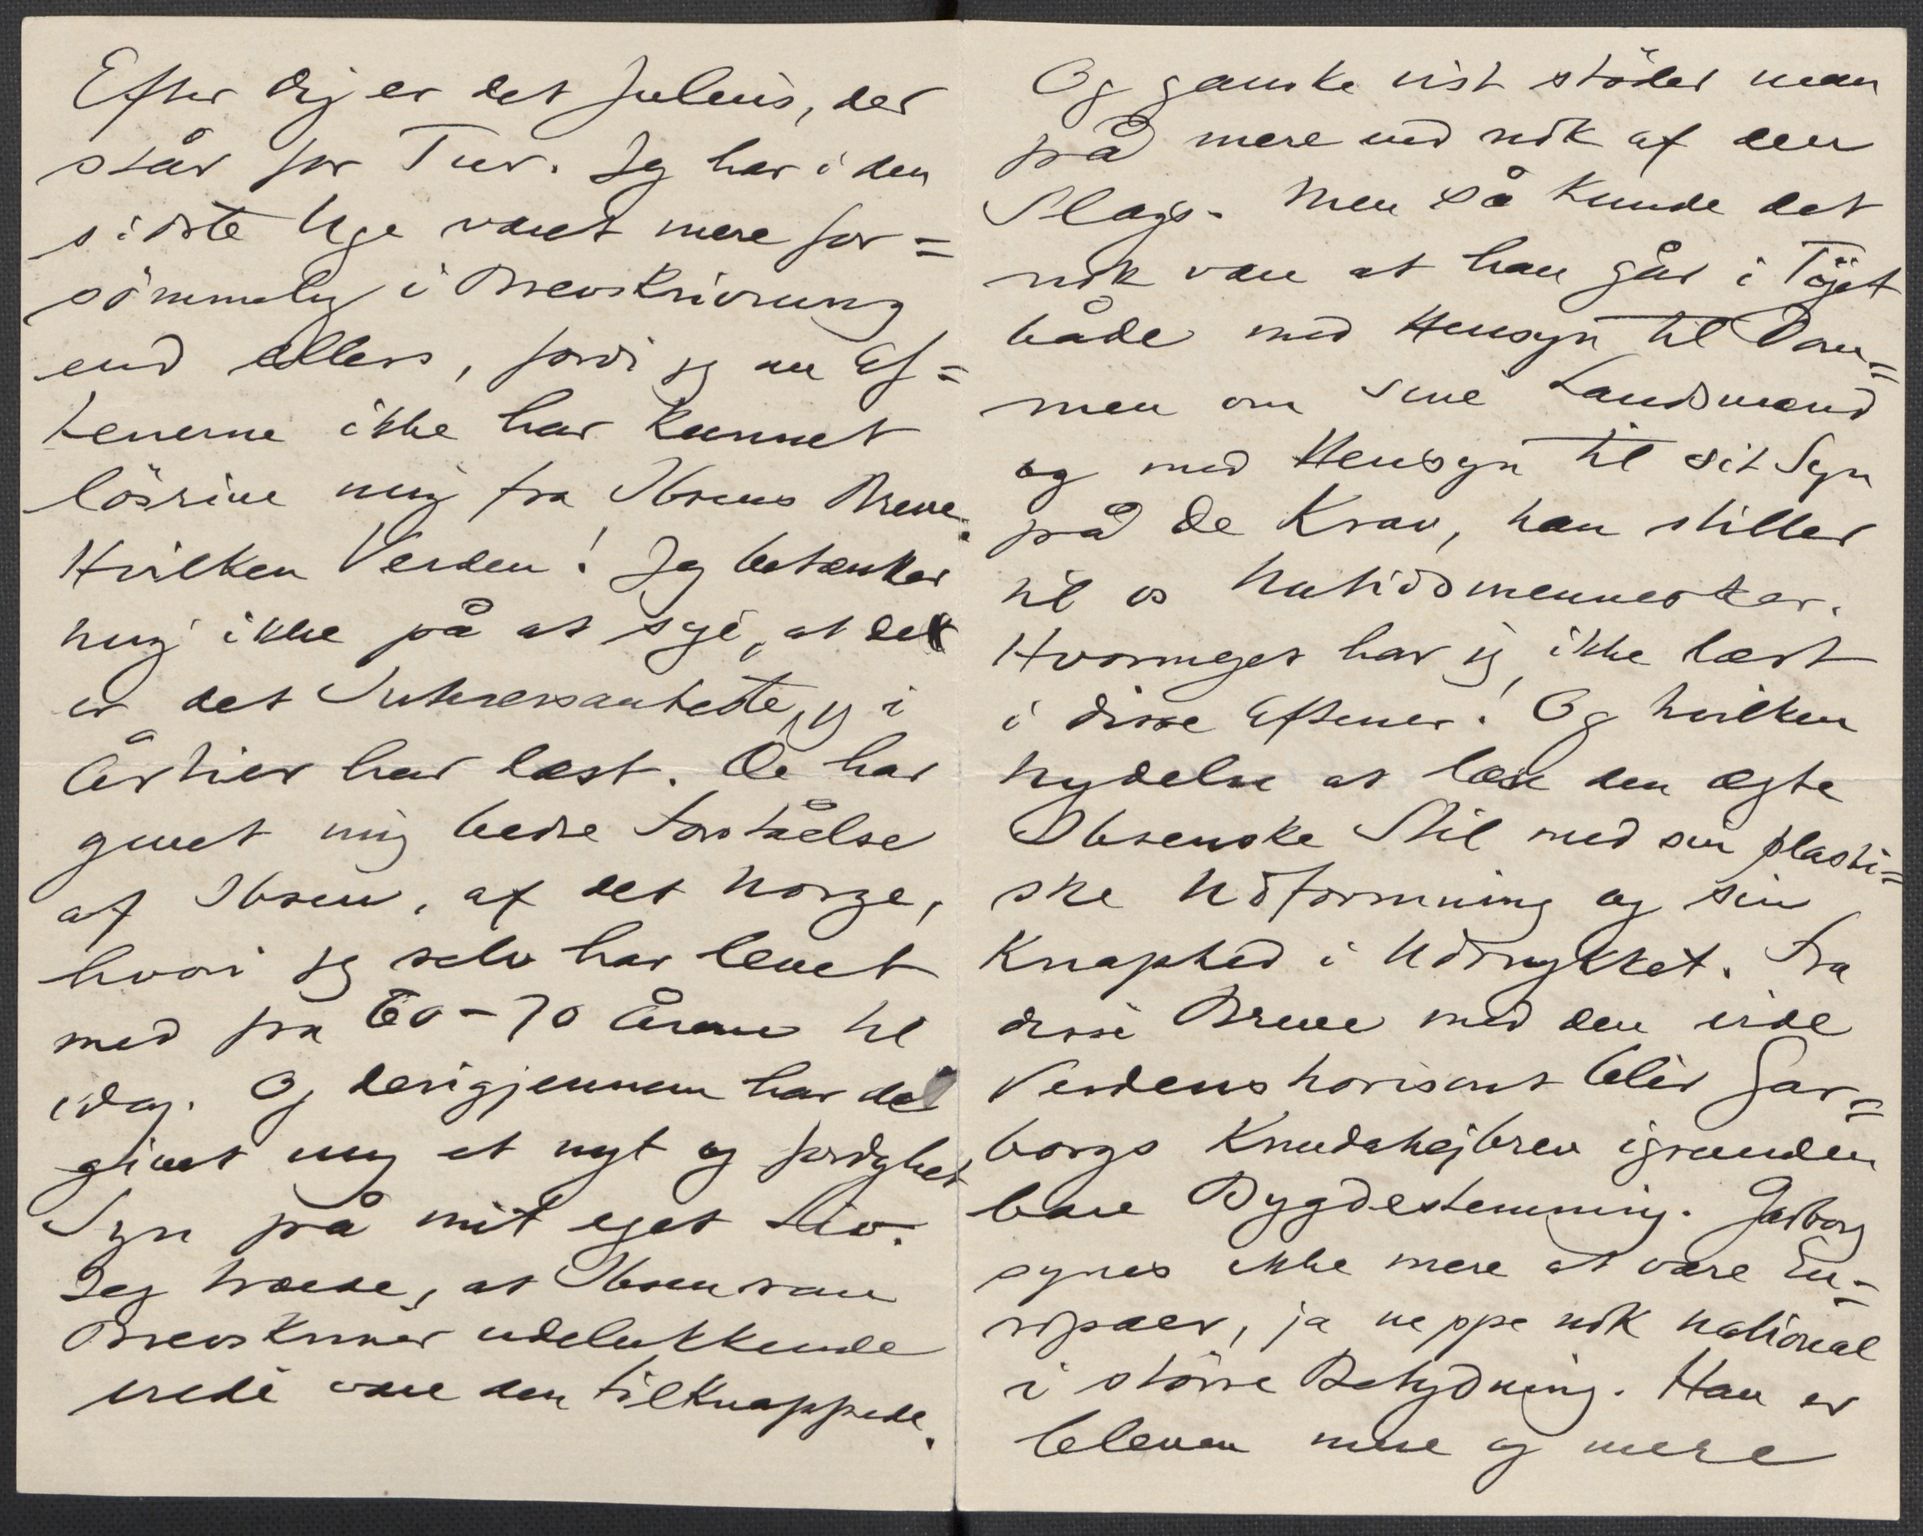 Efter dig er det Julius, der
står for Tur. Jeg har i den
sidste Uge været mere for=
sömmelig i Brevskrivning
end ellers, fordi jeg nu Ef=
tenerne ikke har kunnet
lösrive mig fra Ibsens Breve.
Hvilken Verden! Jeg betænker
mig ikke på at sige, at det
er det Interessanteste, jeg i
Årtier har læst. De har
givet mig bedre Forståelse
af Ibsen, af det Norge,
hvori jeg selv har levet
med fra 60-70 Årene til
idag. Og derigjennem har det
givet mig et nyt og fordybet
Syn på mit eget Liv.
Jeg troede, at Ibsen som
Brevskriver udelukkende
vilde være den tilknappede.
Og ganske vist stöder man
på mere end nok af den
Slags. Men så kunde det
nok være at han går i Töjet
både med Hensyn til Dom=
men om sine Landsmænd
og med Hensyn til sit Syn
på de Krav, han stiller
til os Nutidsmennesker.
Hvormeget har jeg ikke læst
i disse Aftener! Og hvilken
Nydelse at læse den ægte
Ibsenske Stil med sin plasti=
ske Udformning og sin
Knaphed i Udtrykket. Fra
disse Breve med den vide
Verdenshorisont blir Gar=
borgs Knudahejbrev igrunden
bare Bygdestemning. Garborg
synes ikke mere at være Eu=
ropæer, ja neppe nok national
i större Betydning. Han er
bleven mere og mere